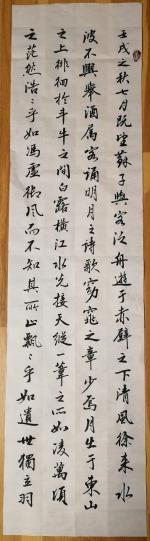 壬戌之秋七月既望蘇子與客泛舟遊于赤壁之下清風徐來水
波不興舉酒屬客誦明月之詩歌窈窕之章少焉月出于東山
之上徘徊於斗牛之間白露橫江水光接天縱一葦之所如凌萬頃
之茫然浩〻乎如馮虛御風而不知其所止飄〻乎如遺世獨立羽